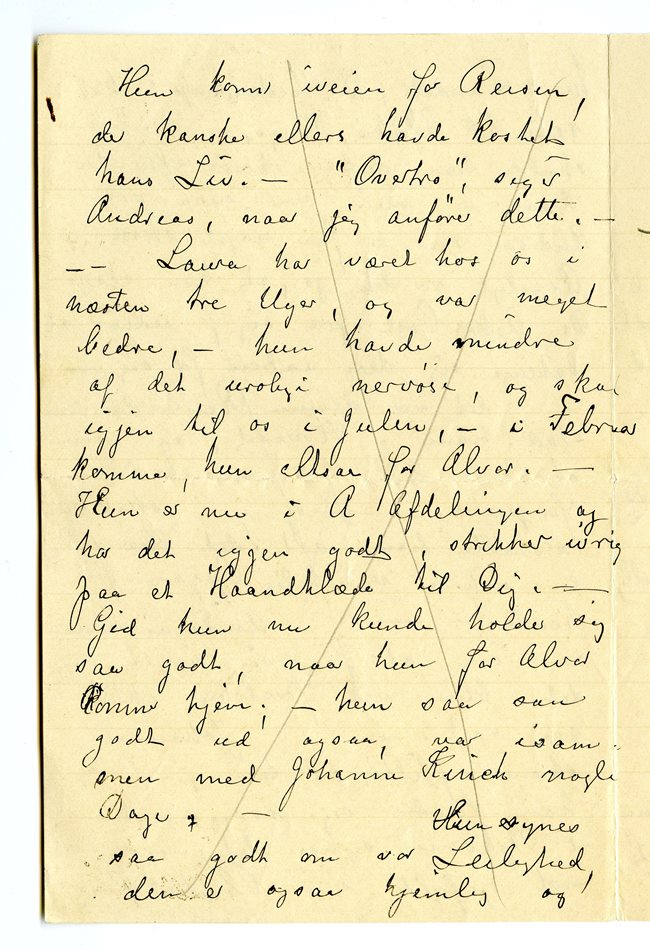 Hun kom iveien for Reisen,
der kanske ellers havde kostet
hans Liv. — "Overtro", siger
Andreas, naar jeg anfører dette. —
— — Laura har været hos os i
næsten tre Uger, og var meget
bedre, — hun havde mindre
af det urolige nervøse, og skal
igjen til os i Julen, — i Februar
kommer hun altsaa for Alvor. —
Hun er nu i A Afdelingen og
har det igjen godt, strikker ivrig
paa et Haandklæde til Dig. —
Gid hun nu kunde holde sig
saa godt, naar hun for Alvor
kommer hjem; — hun saa saa
godt ud ogsaa, var isam-
men med Johanne Kinck nogle
Dage. — Hun synes
saa godt om vor Leilighed,
den er ogsaa hjemlig og